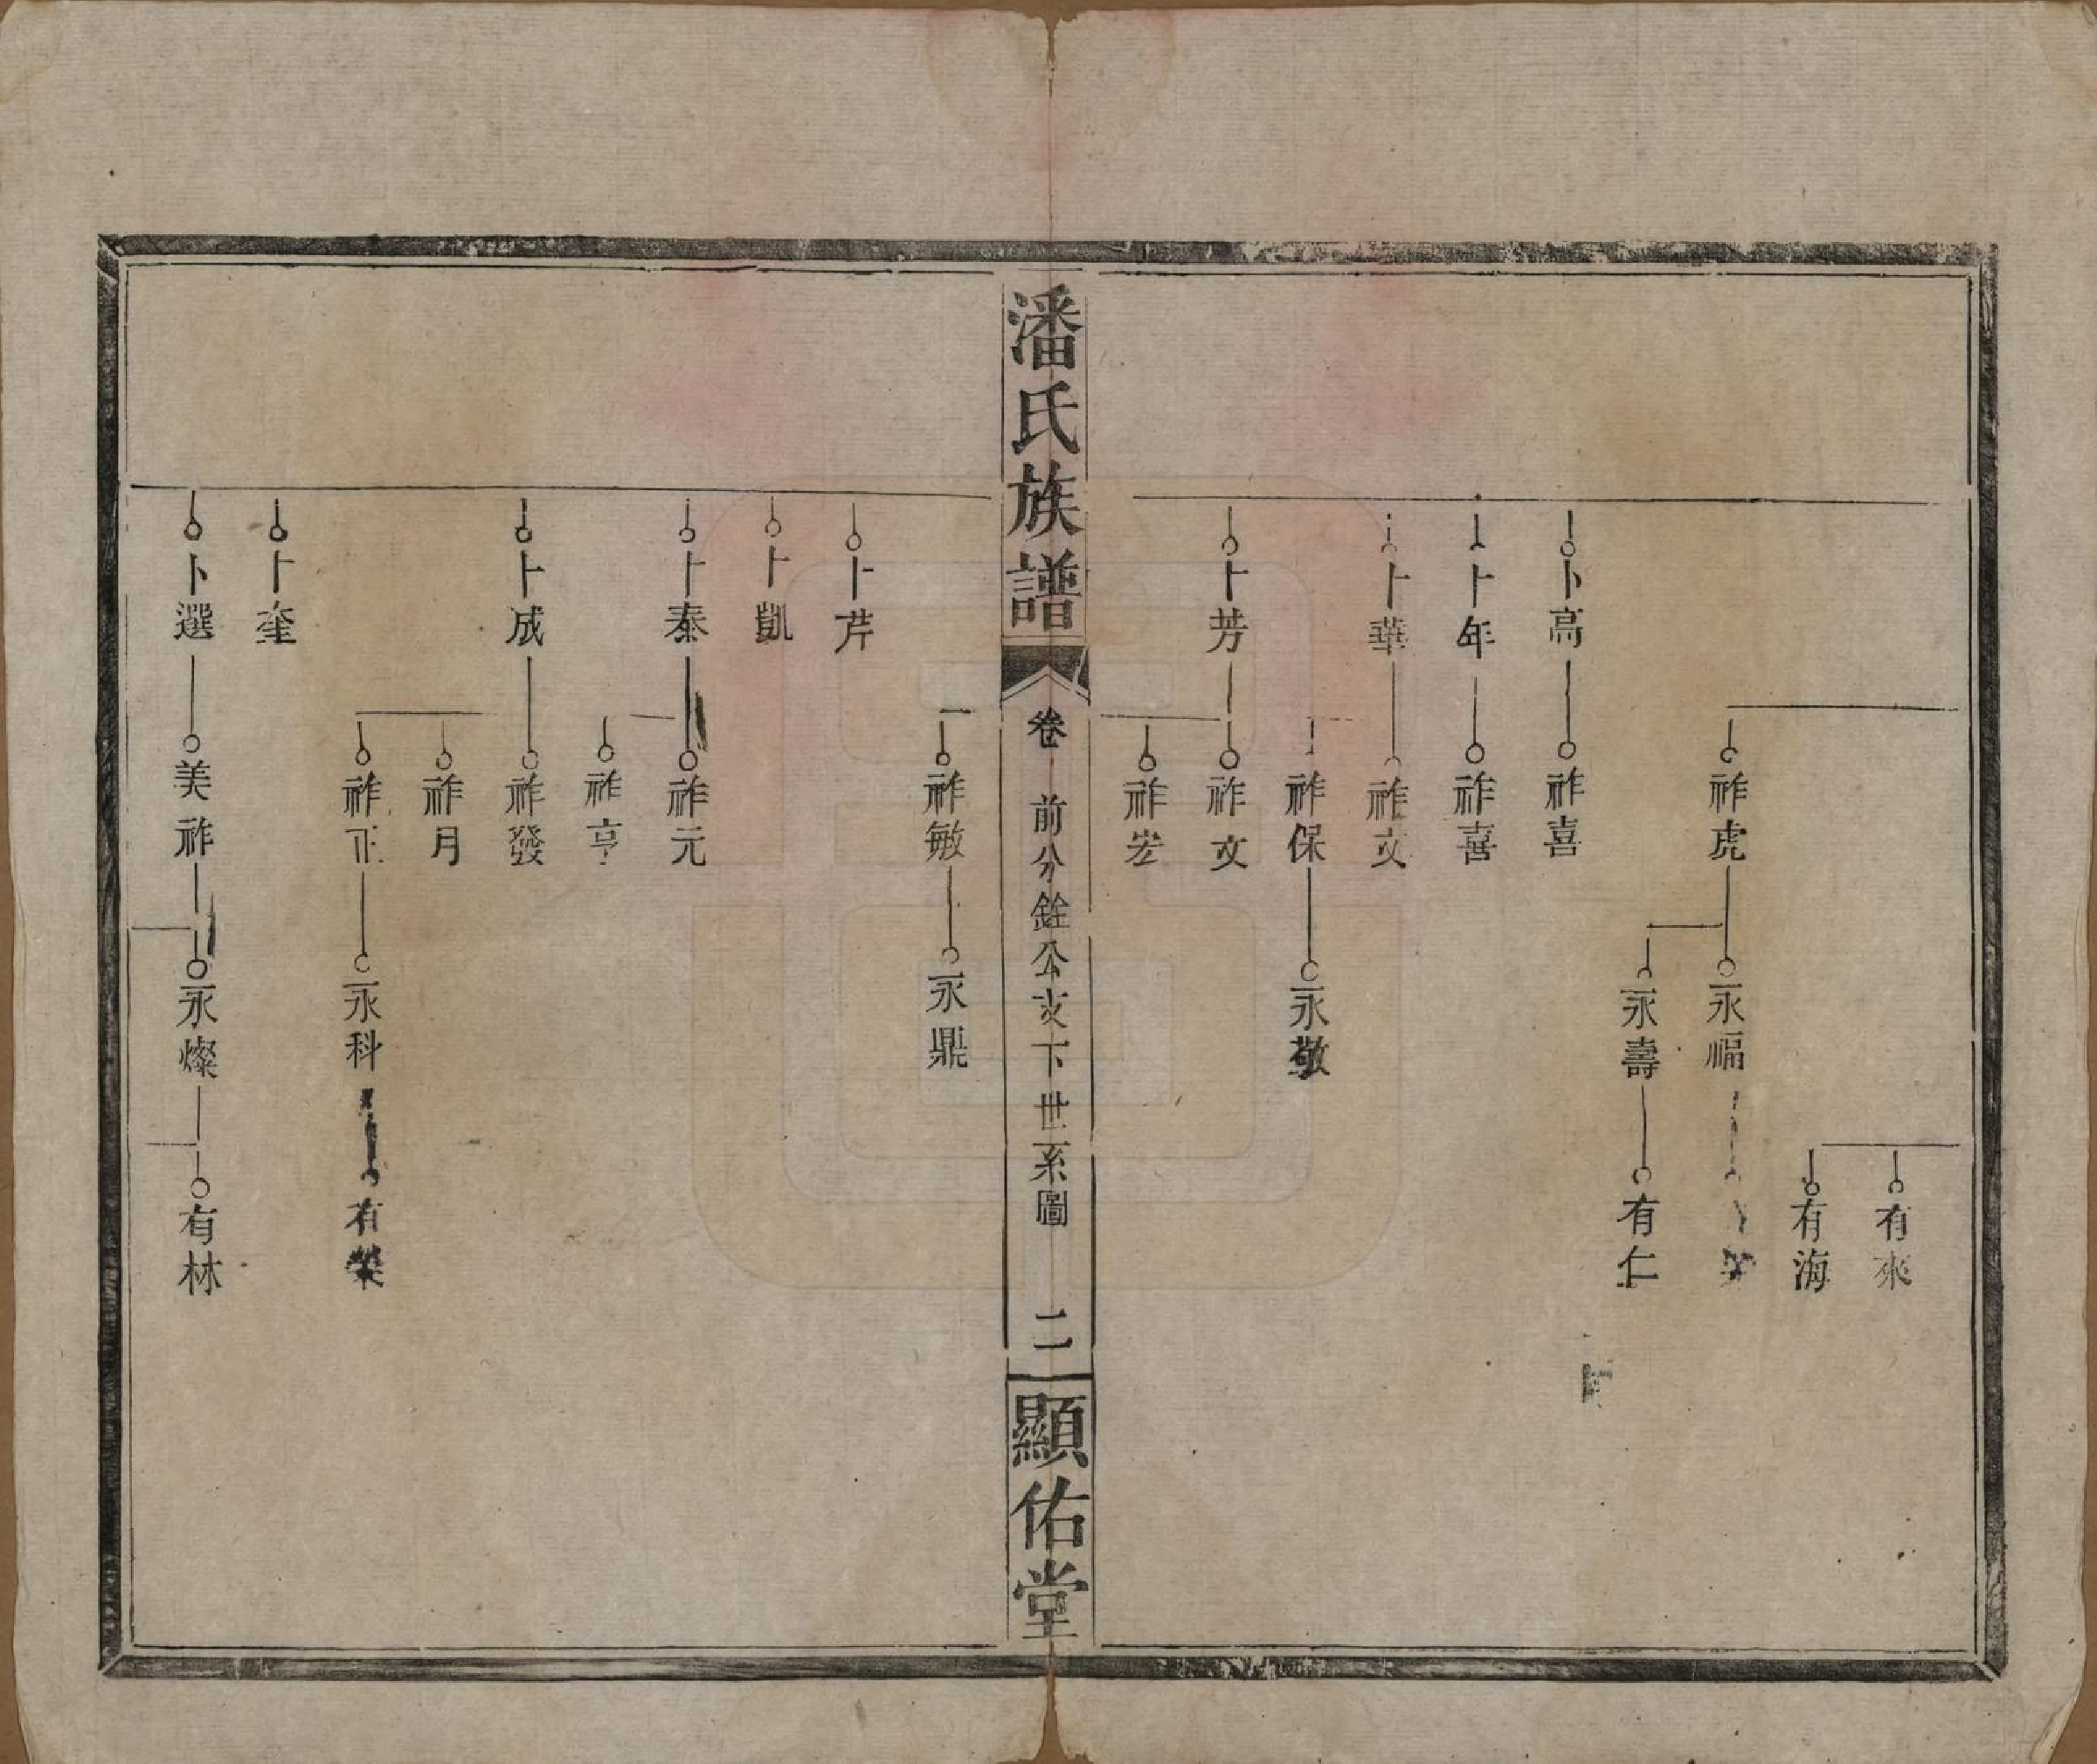 有來
有海
祚虎
永福
永壽
有仁
卜高
祚喜
卜年
祚喜
卜華
祚文
祚保
永敬
卜芳
祚文
祚宏
潘氏族譜
卷
前分銓公支下世系圖
二
顯佑堂
祚敏
永鼎
卜芹
卜凱
卜泰
祚元
祚亨
卜成
祚發
祚月
祚正
永科
有榮
卜奎
卜選
美祚
永燦
有林